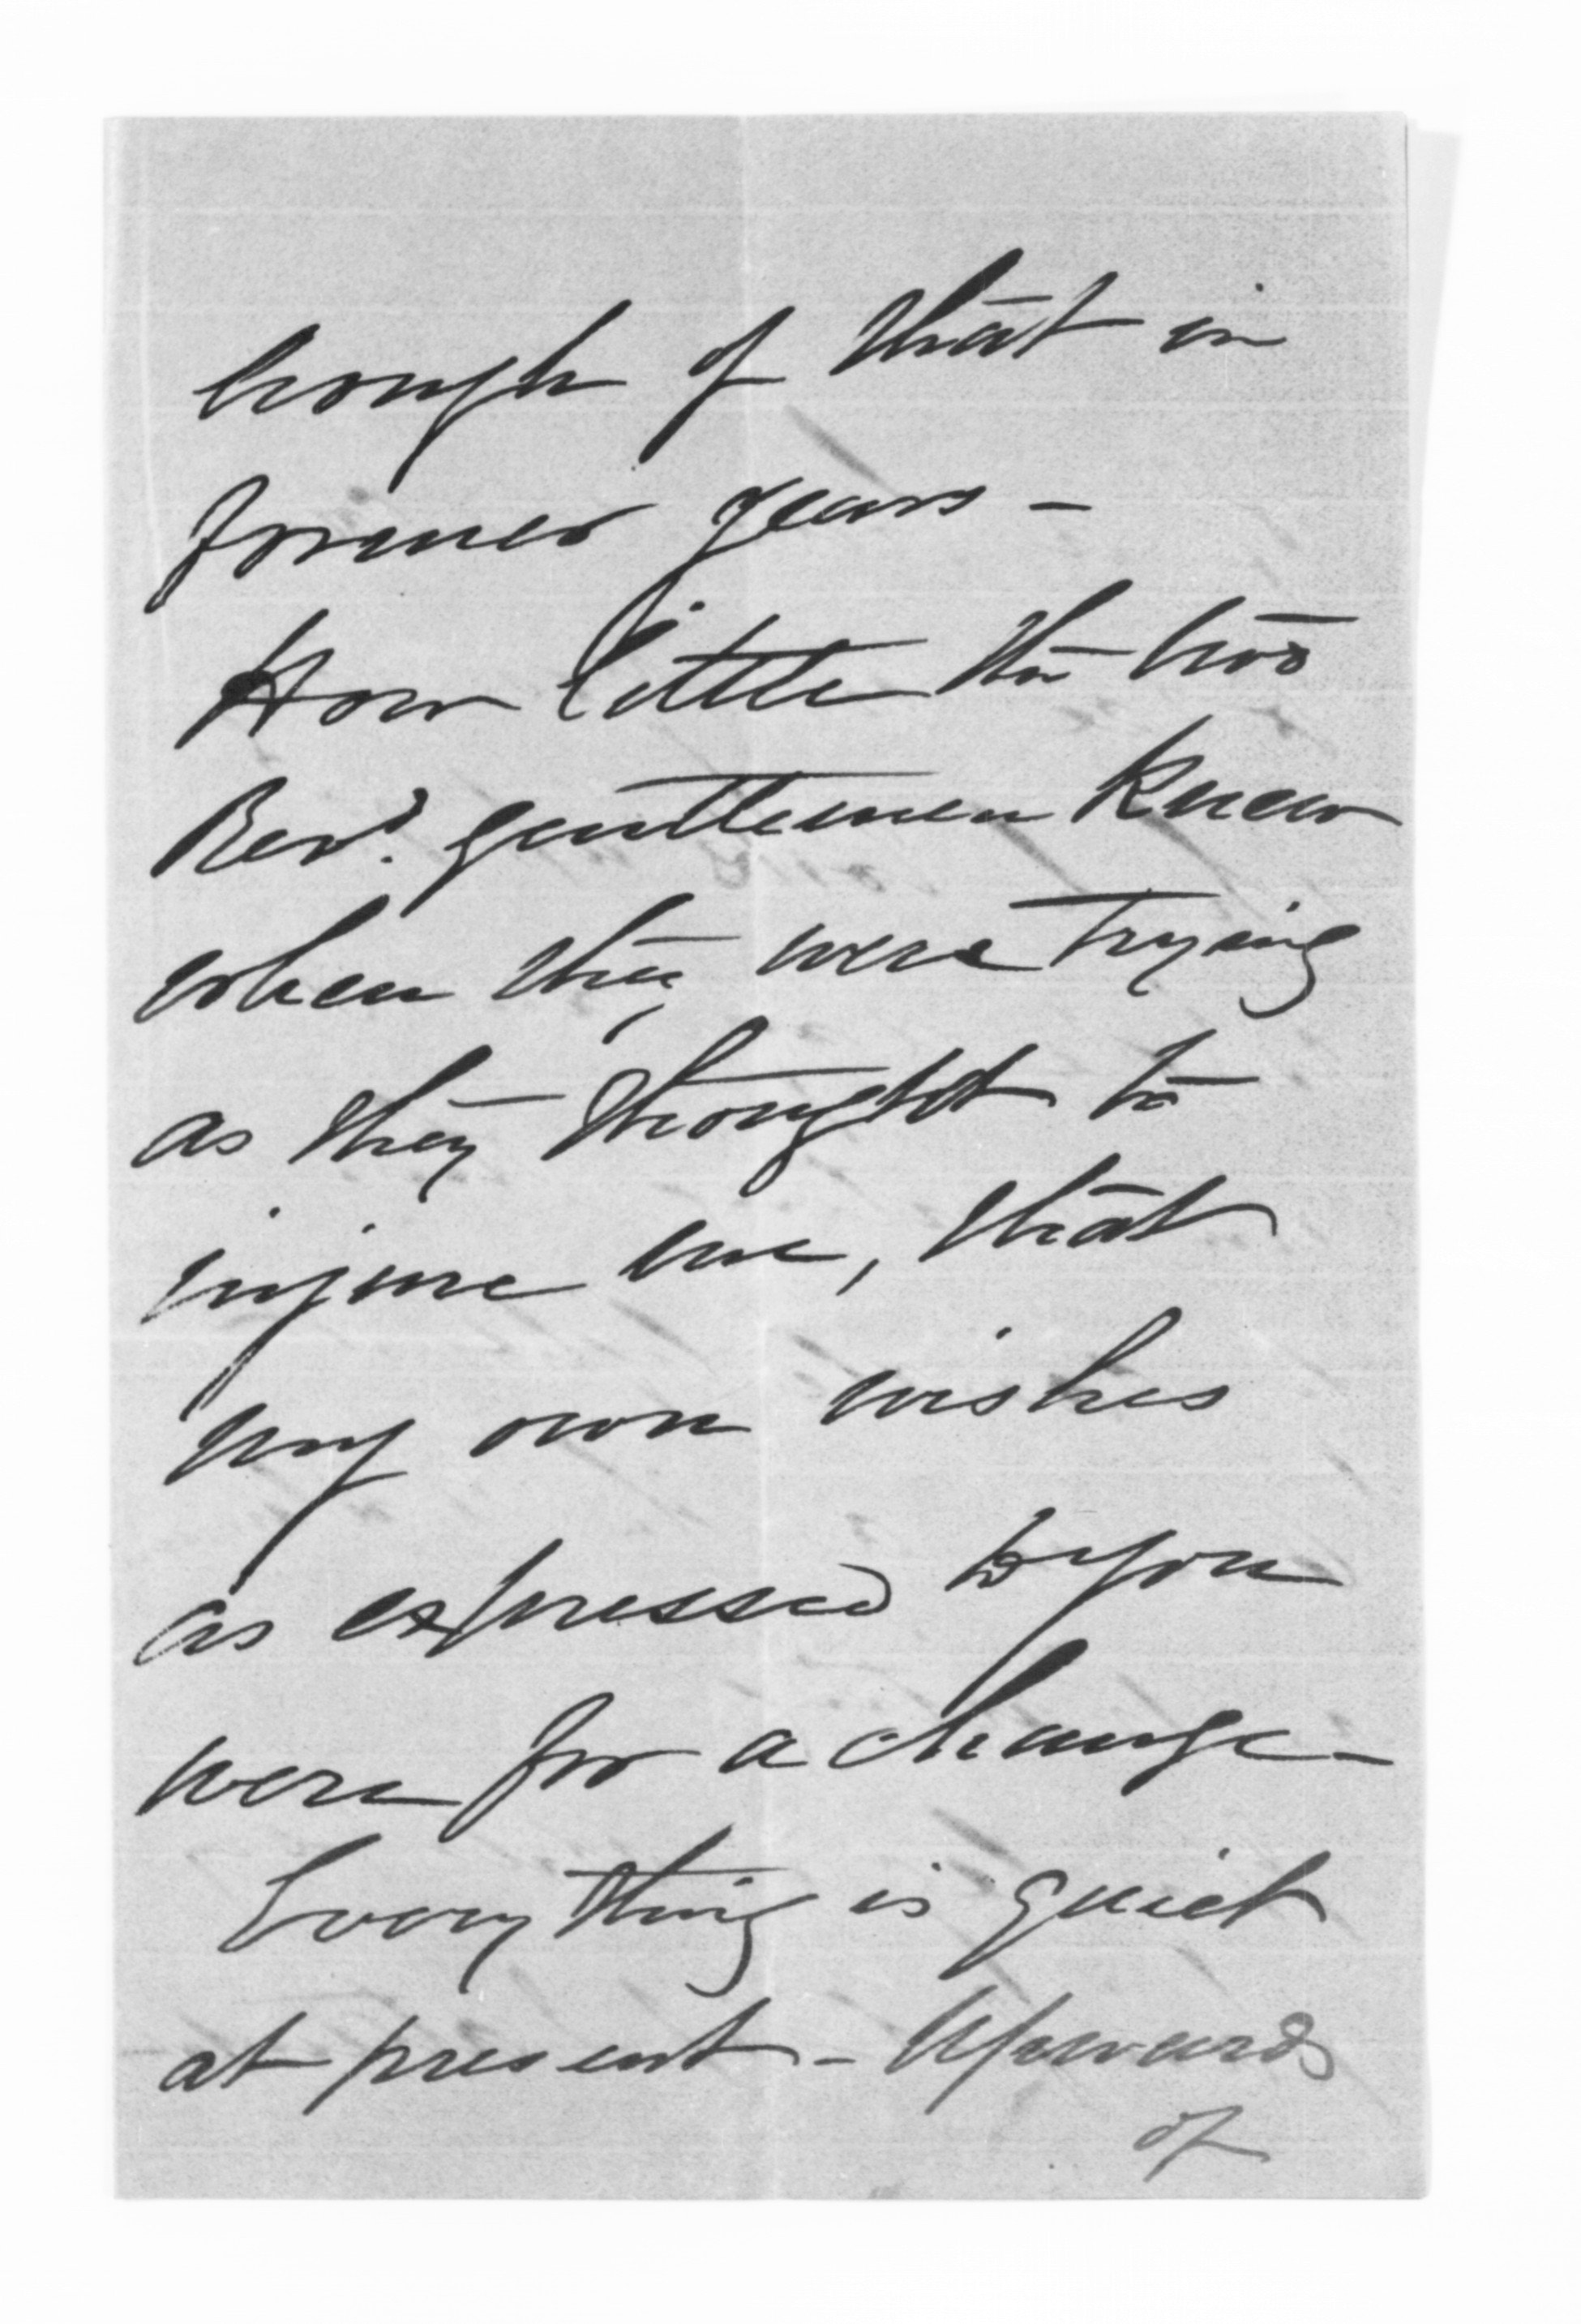 hough of that in
former years -
How little the two
Revd. gentlemen knew
when they were trying
as they thought to
injure me, that
my own wishes
as expressed to you
were for a change -
Everything is quiet
at present - Upwards
of